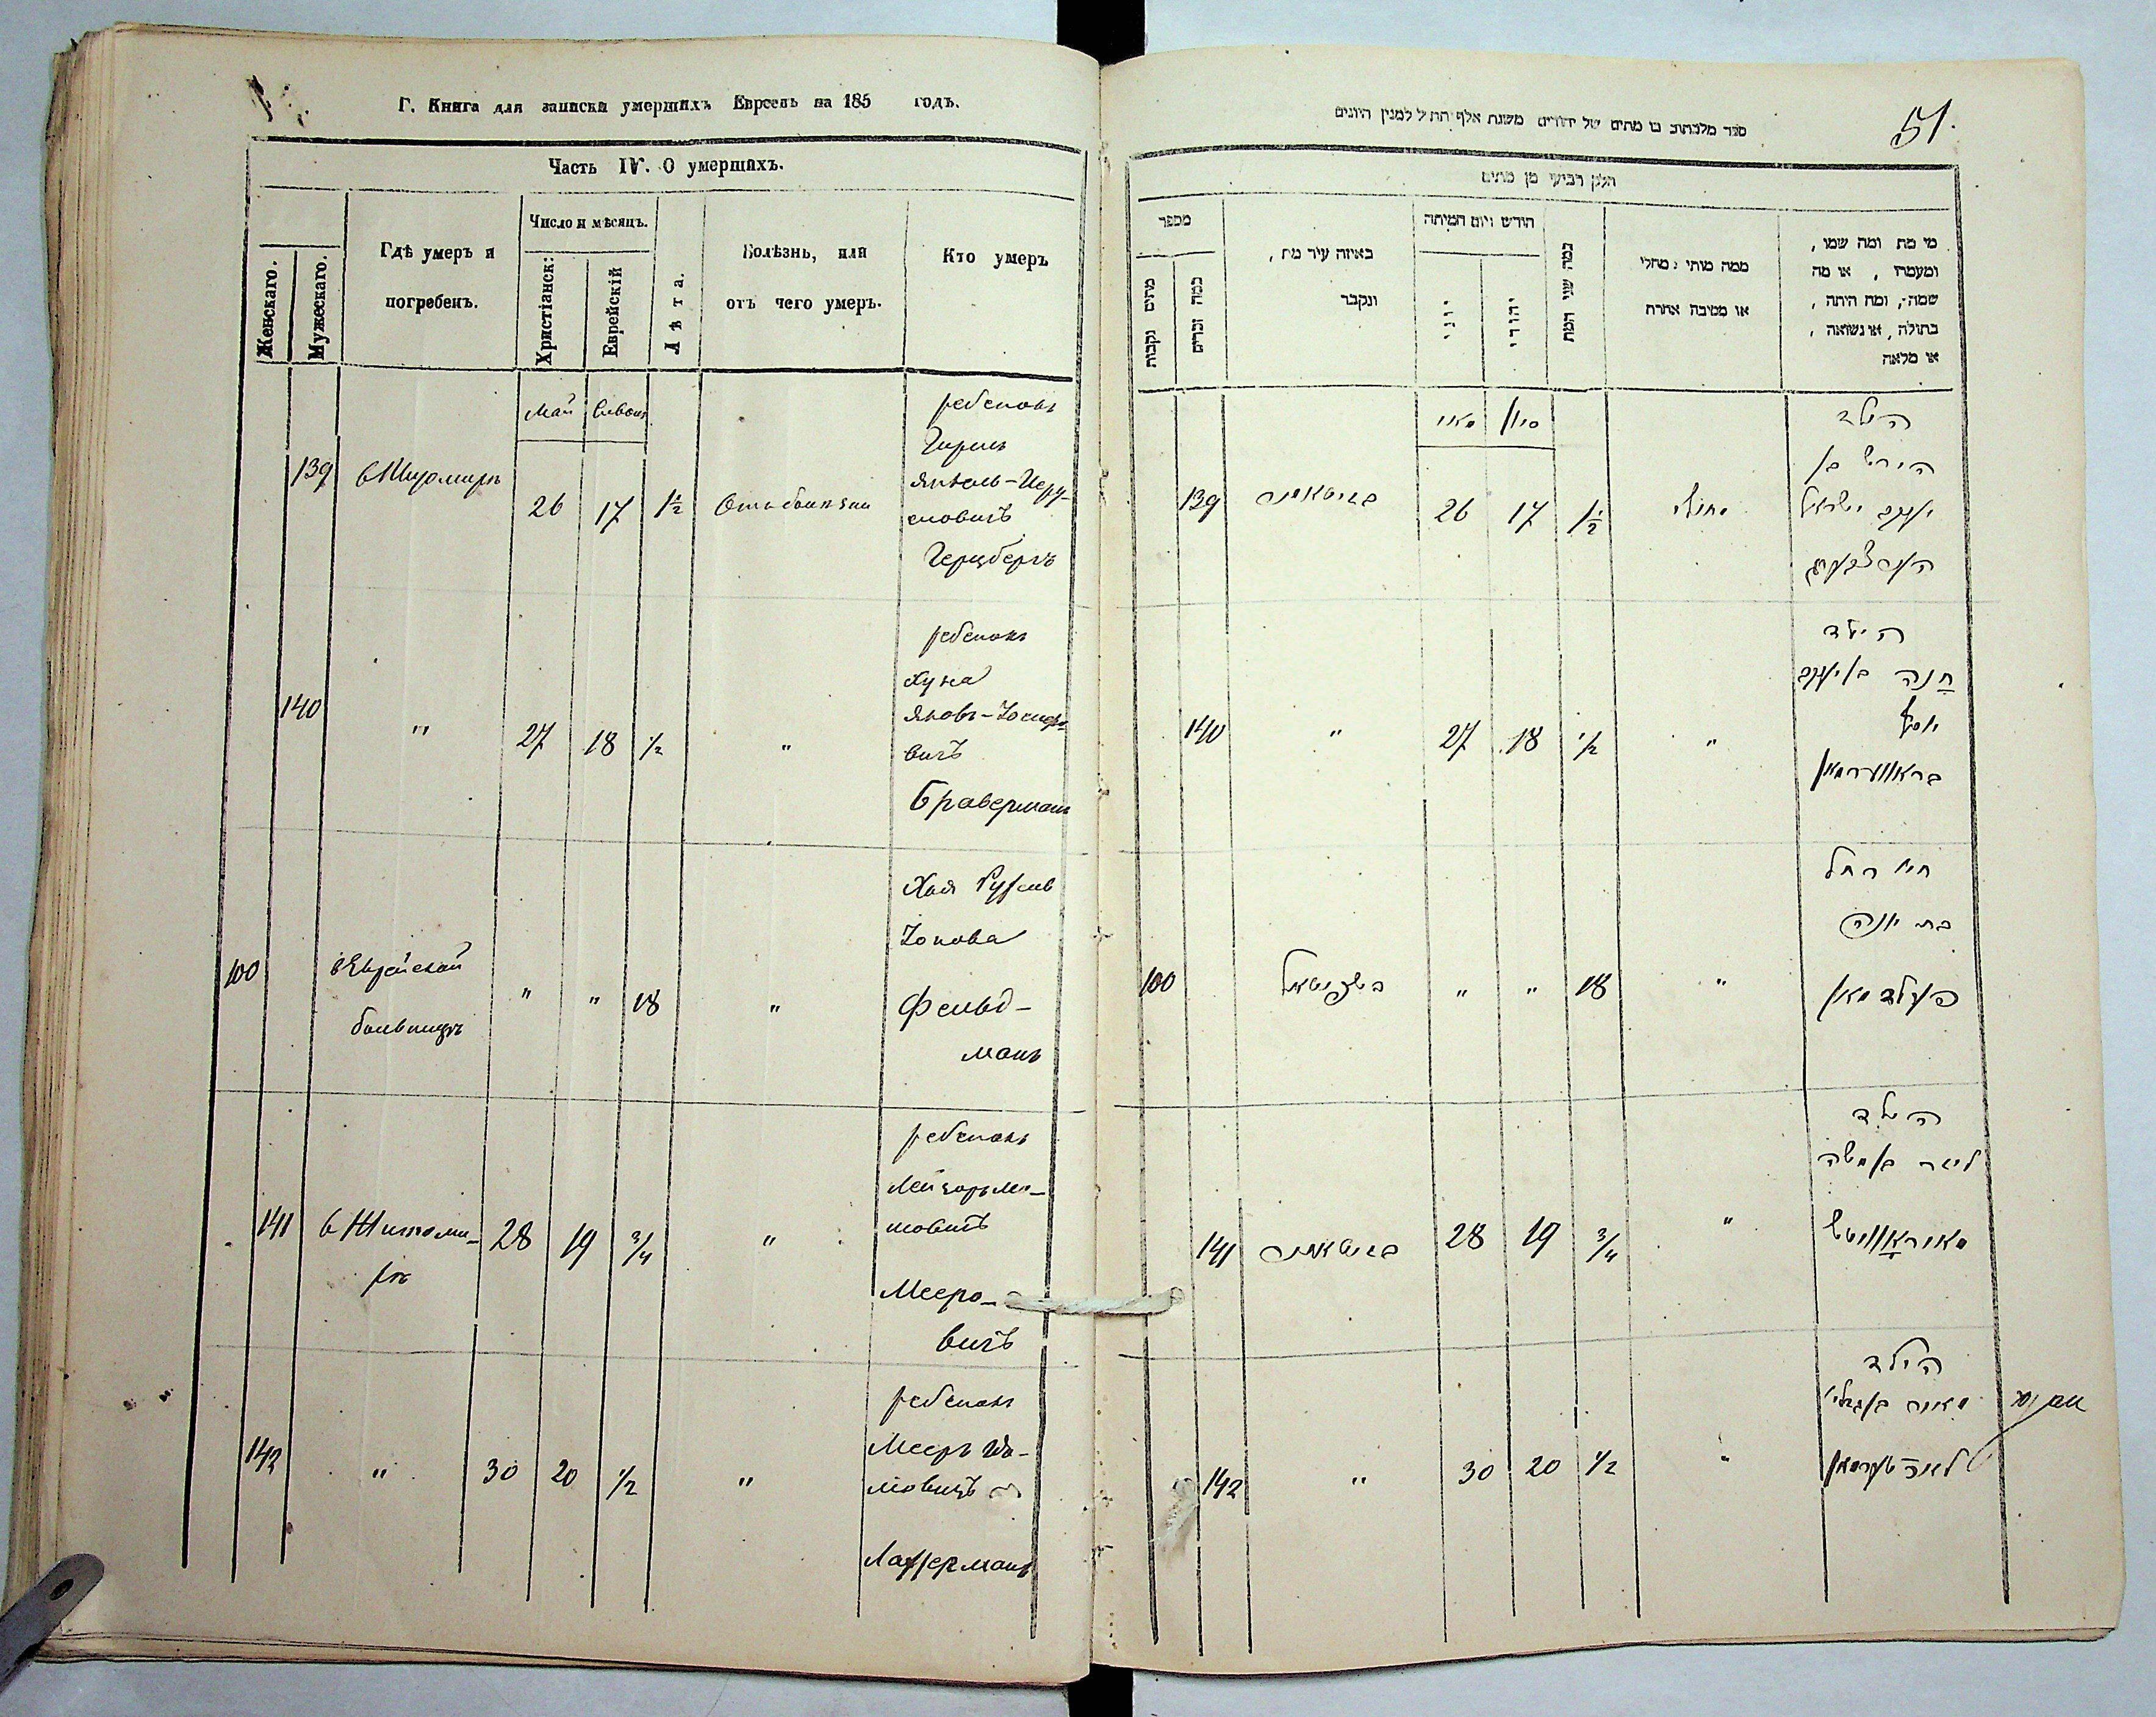 Г. Книга для записки умершихъ Евреевъ на 185 годъ.
Часть IV. О умершихъ.
Женскаго.
Мужескаго.
Гдѣ умеръ и
погребенъ.
Число и мѣсяцъ.
Христіанск:
Еврейскій
Лѣта.
Болѣзнь, или
отъ чего умеръ.
Кто умеръ
Май Сивонъ
139 вЖитомиръ 26 17 1½ Отъ болѣзни
ребенокъ
Гершъ
Янкель-Исру-
ловичъ
Герцбергъ
140 " 27 18 1/2 "
ребенокъ
Хуна
Яновъ-Іосифо-
вичъ
Браверманъ
100 вЕврейской
больницѣ
" " 18 "
Хая Рухль
Іонова
Фельд-
манъ
141 в Житоми-
рѣ
28 19 3/4 "
ребенокъ
Мееро-
вичъ
142 " 30 20 1/2 "
ребенокъ
Мееръ
Лаффферманъ
51.
ספר מלכתוב בו מתים של יהודים משנת אלף תת״ל למנין היונים
חלק רביעי מן מתים
מספר
מתים נקבות
כמה זכרים
באיזה עיר מת,
ונקבר
חודש ויום המיתה
יוני
יהודי
כמה שני המת
ממה מותי: מחלי
או מסיבה אחרת
מי מת ומה שמו,
ומעמדו, או מה
שמה, ומה היתה,
בתולה, או נשואה,
או מלאה
מאי סיון
139 בזיטאמיר 26 17 1½ מחולי
הילד
הירש בן
יעקב ישראל
הערצבערג
140 " 27 18 1/2 "
הילד
חנה בן יעקב
יוסף
בראווערמאן
100 בשפיטאל " " 18 "
חיי רחל
בת יונה
פעלדמאן
141 בזיטאמיר 28 19 3/4 "
הילד
ליזר בן משה
מאיראוויטש
142 " 30 20 1/2 "
הילד